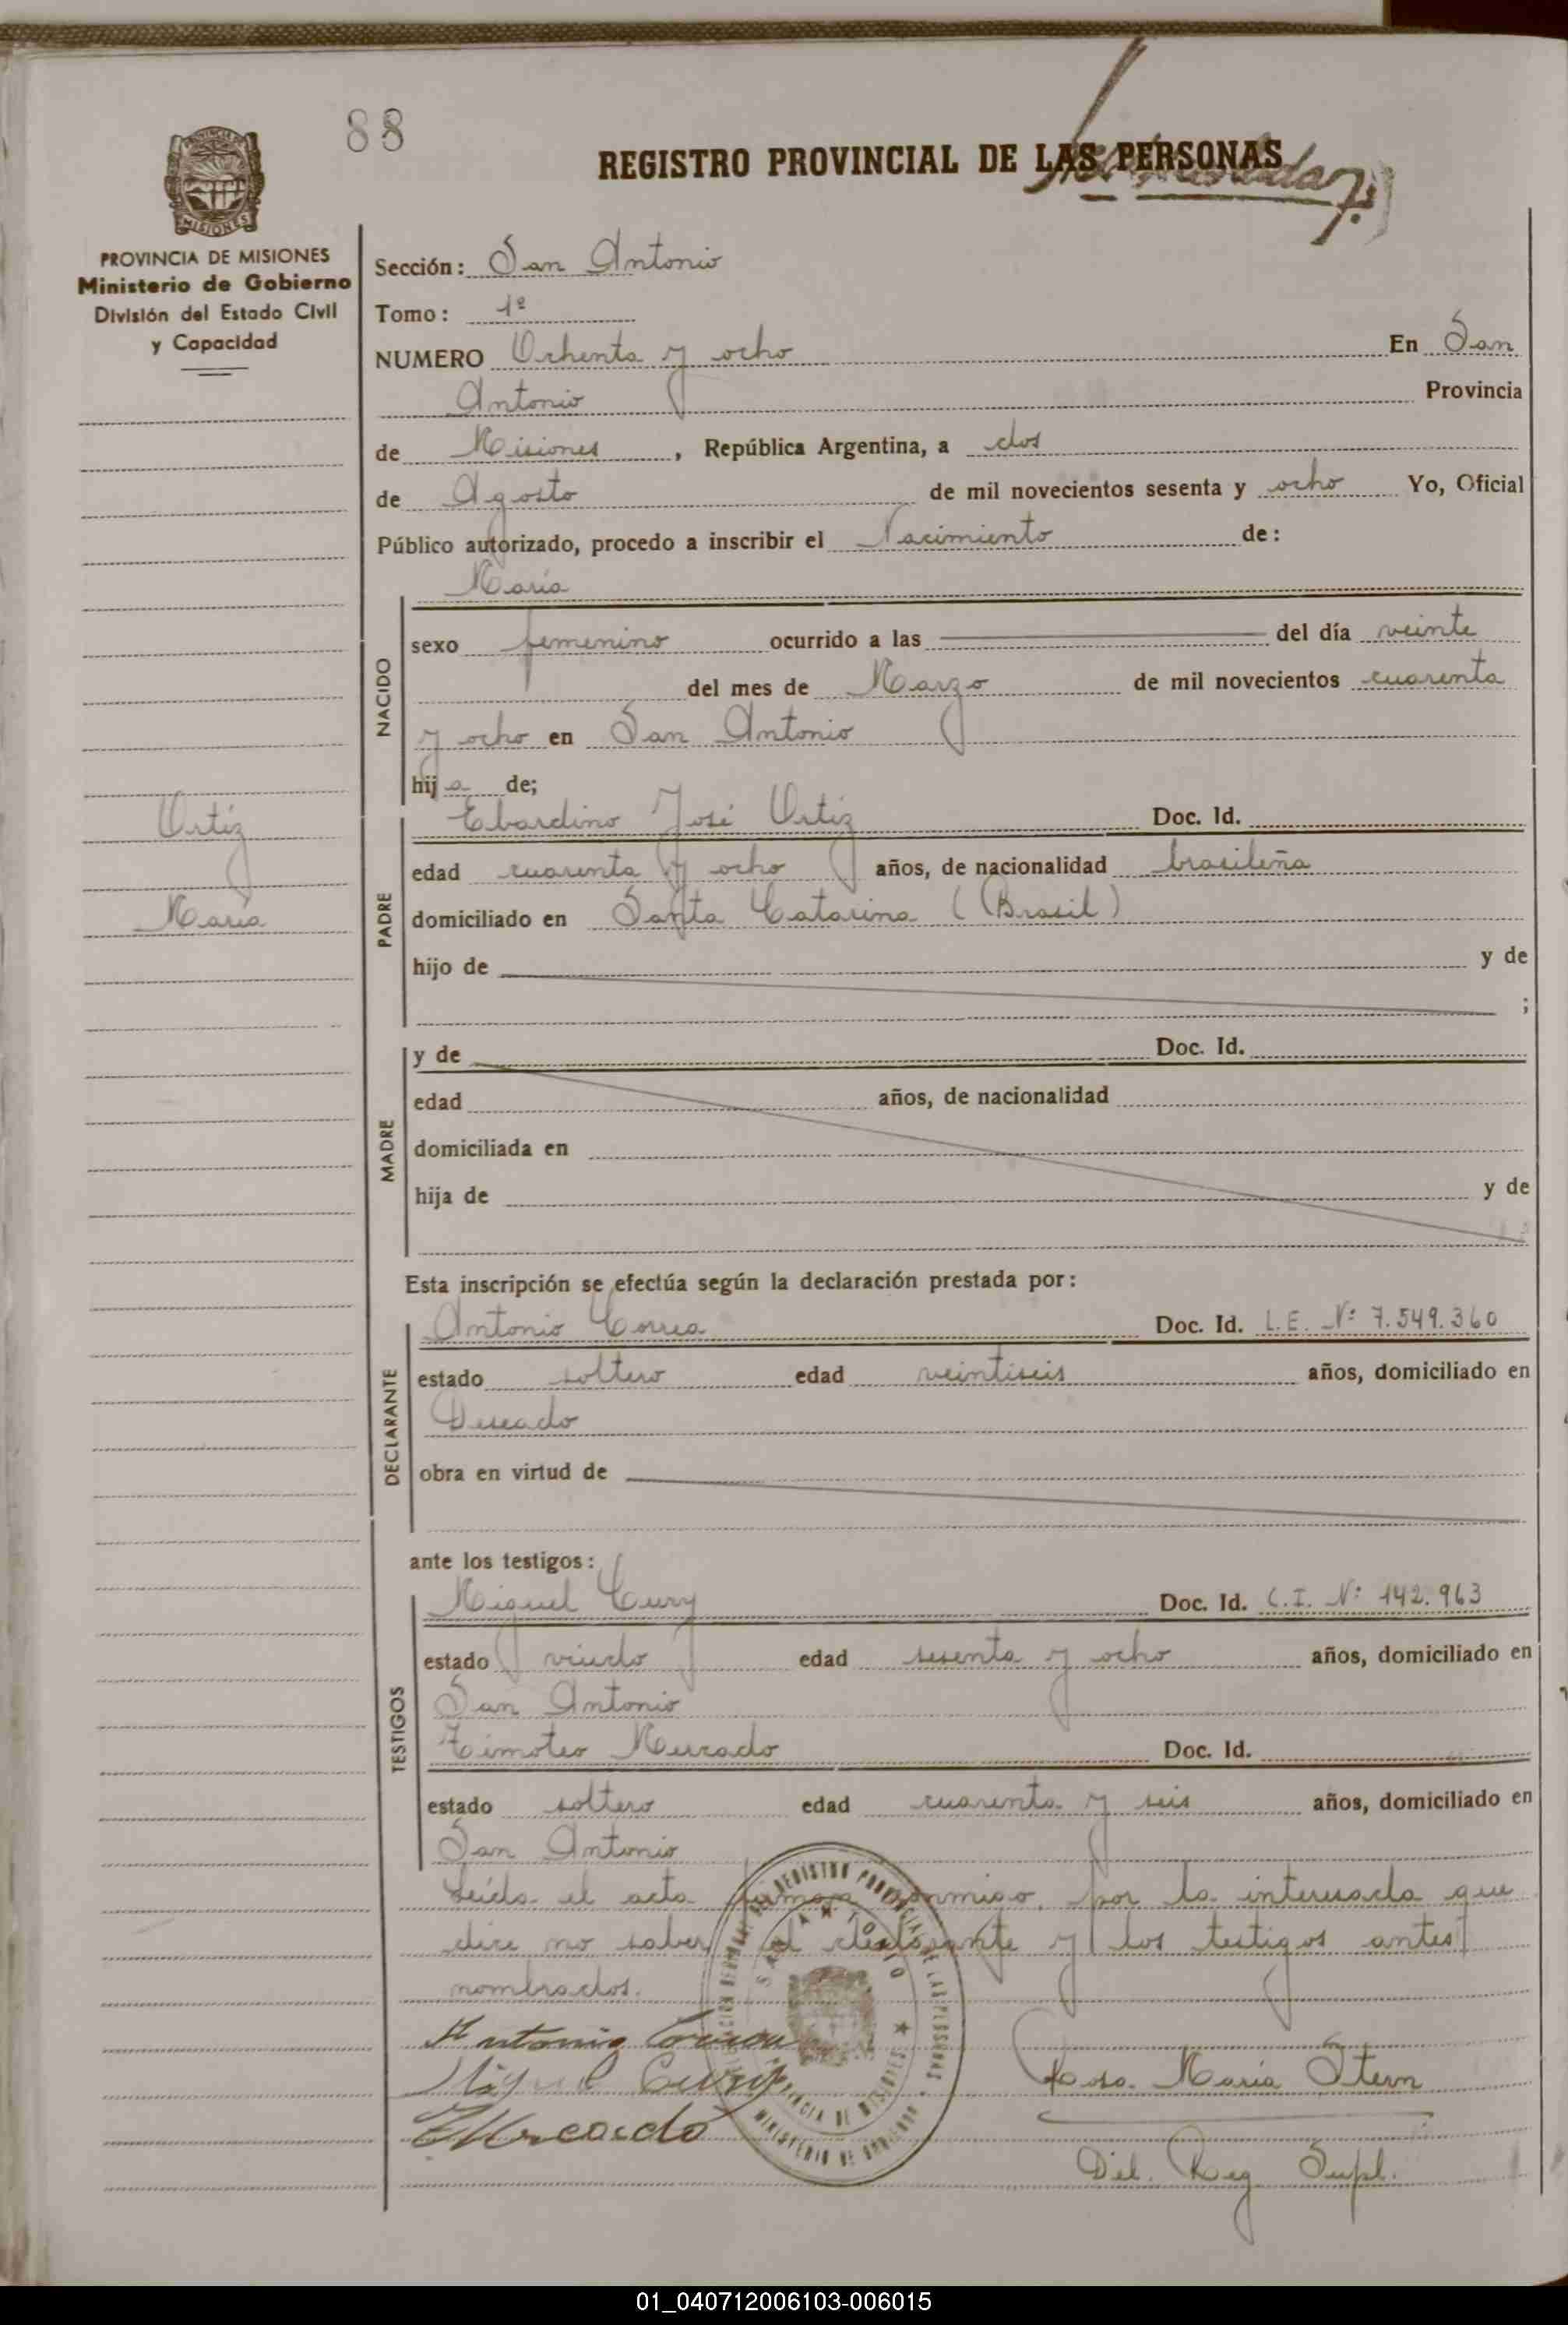 88
REGISTRO PROVINCIAL DE LAS PERSONAS
PROVINCIA DE MISIONES
Ministerio de Gobierno
División del Estado Civil
y Capacidad
Sección: San Antonio
Tomo: 1º
NUMERO Ochenta y ocho En San
Antonio Provincia
de Misiones, República Argentina, a dos
de Agosto de mil novecientos sesenta y ocho Yo, Oficial
Público autorizado, procedo a inscribir el Nacimiento de:
María
NACIDO
sexo femenino ocurrido a las del día veinte
del mes de Marzo de mil novecientos cuarenta
y ocho en San Antonio
hija de;
Ortiz
María
PADRE
Ebardino José Ortiz Doc. Id.
edad cuarenta y ocho años, de nacionalidad brasileña
domiciliado en Santa Catarina (Brasil)
hijo de y de
;
MADRE
y de Doc. Id.
edad años, de nacionalidad
domiciliada en
hija de y de
Esta inscripción se efectúa según la declaración prestada por:
DECLARANTE
Antonio Correa Doc. Id. L.E. Nº 7.549.360
estado soltero edad veintiseis años, domiciliado en
Deseado
obra en virtud de
ante los testigos:
TESTIGOS
Miguel Cury Doc. Id. C.I. Nº 142.963
estado viudo edad sesenta y ocho años, domiciliado en
San Antonio
Timoteo Mercado Doc. Id.
estado soltero edad cuarenta y seis años, domiciliado en
San Antonio
Leída el acta firman conmigo, por la interesada que
dice no saber, el declarante y los testigos antes
nombrados.
Antonio
Miguel Cury
Mercado
Rosa María Stern
Del. Reg Supl.
SAN ANTONIO
PROVINCIA DE MISIONES
MINISTERIO DE GOBIERNO
01_040712006103-006015